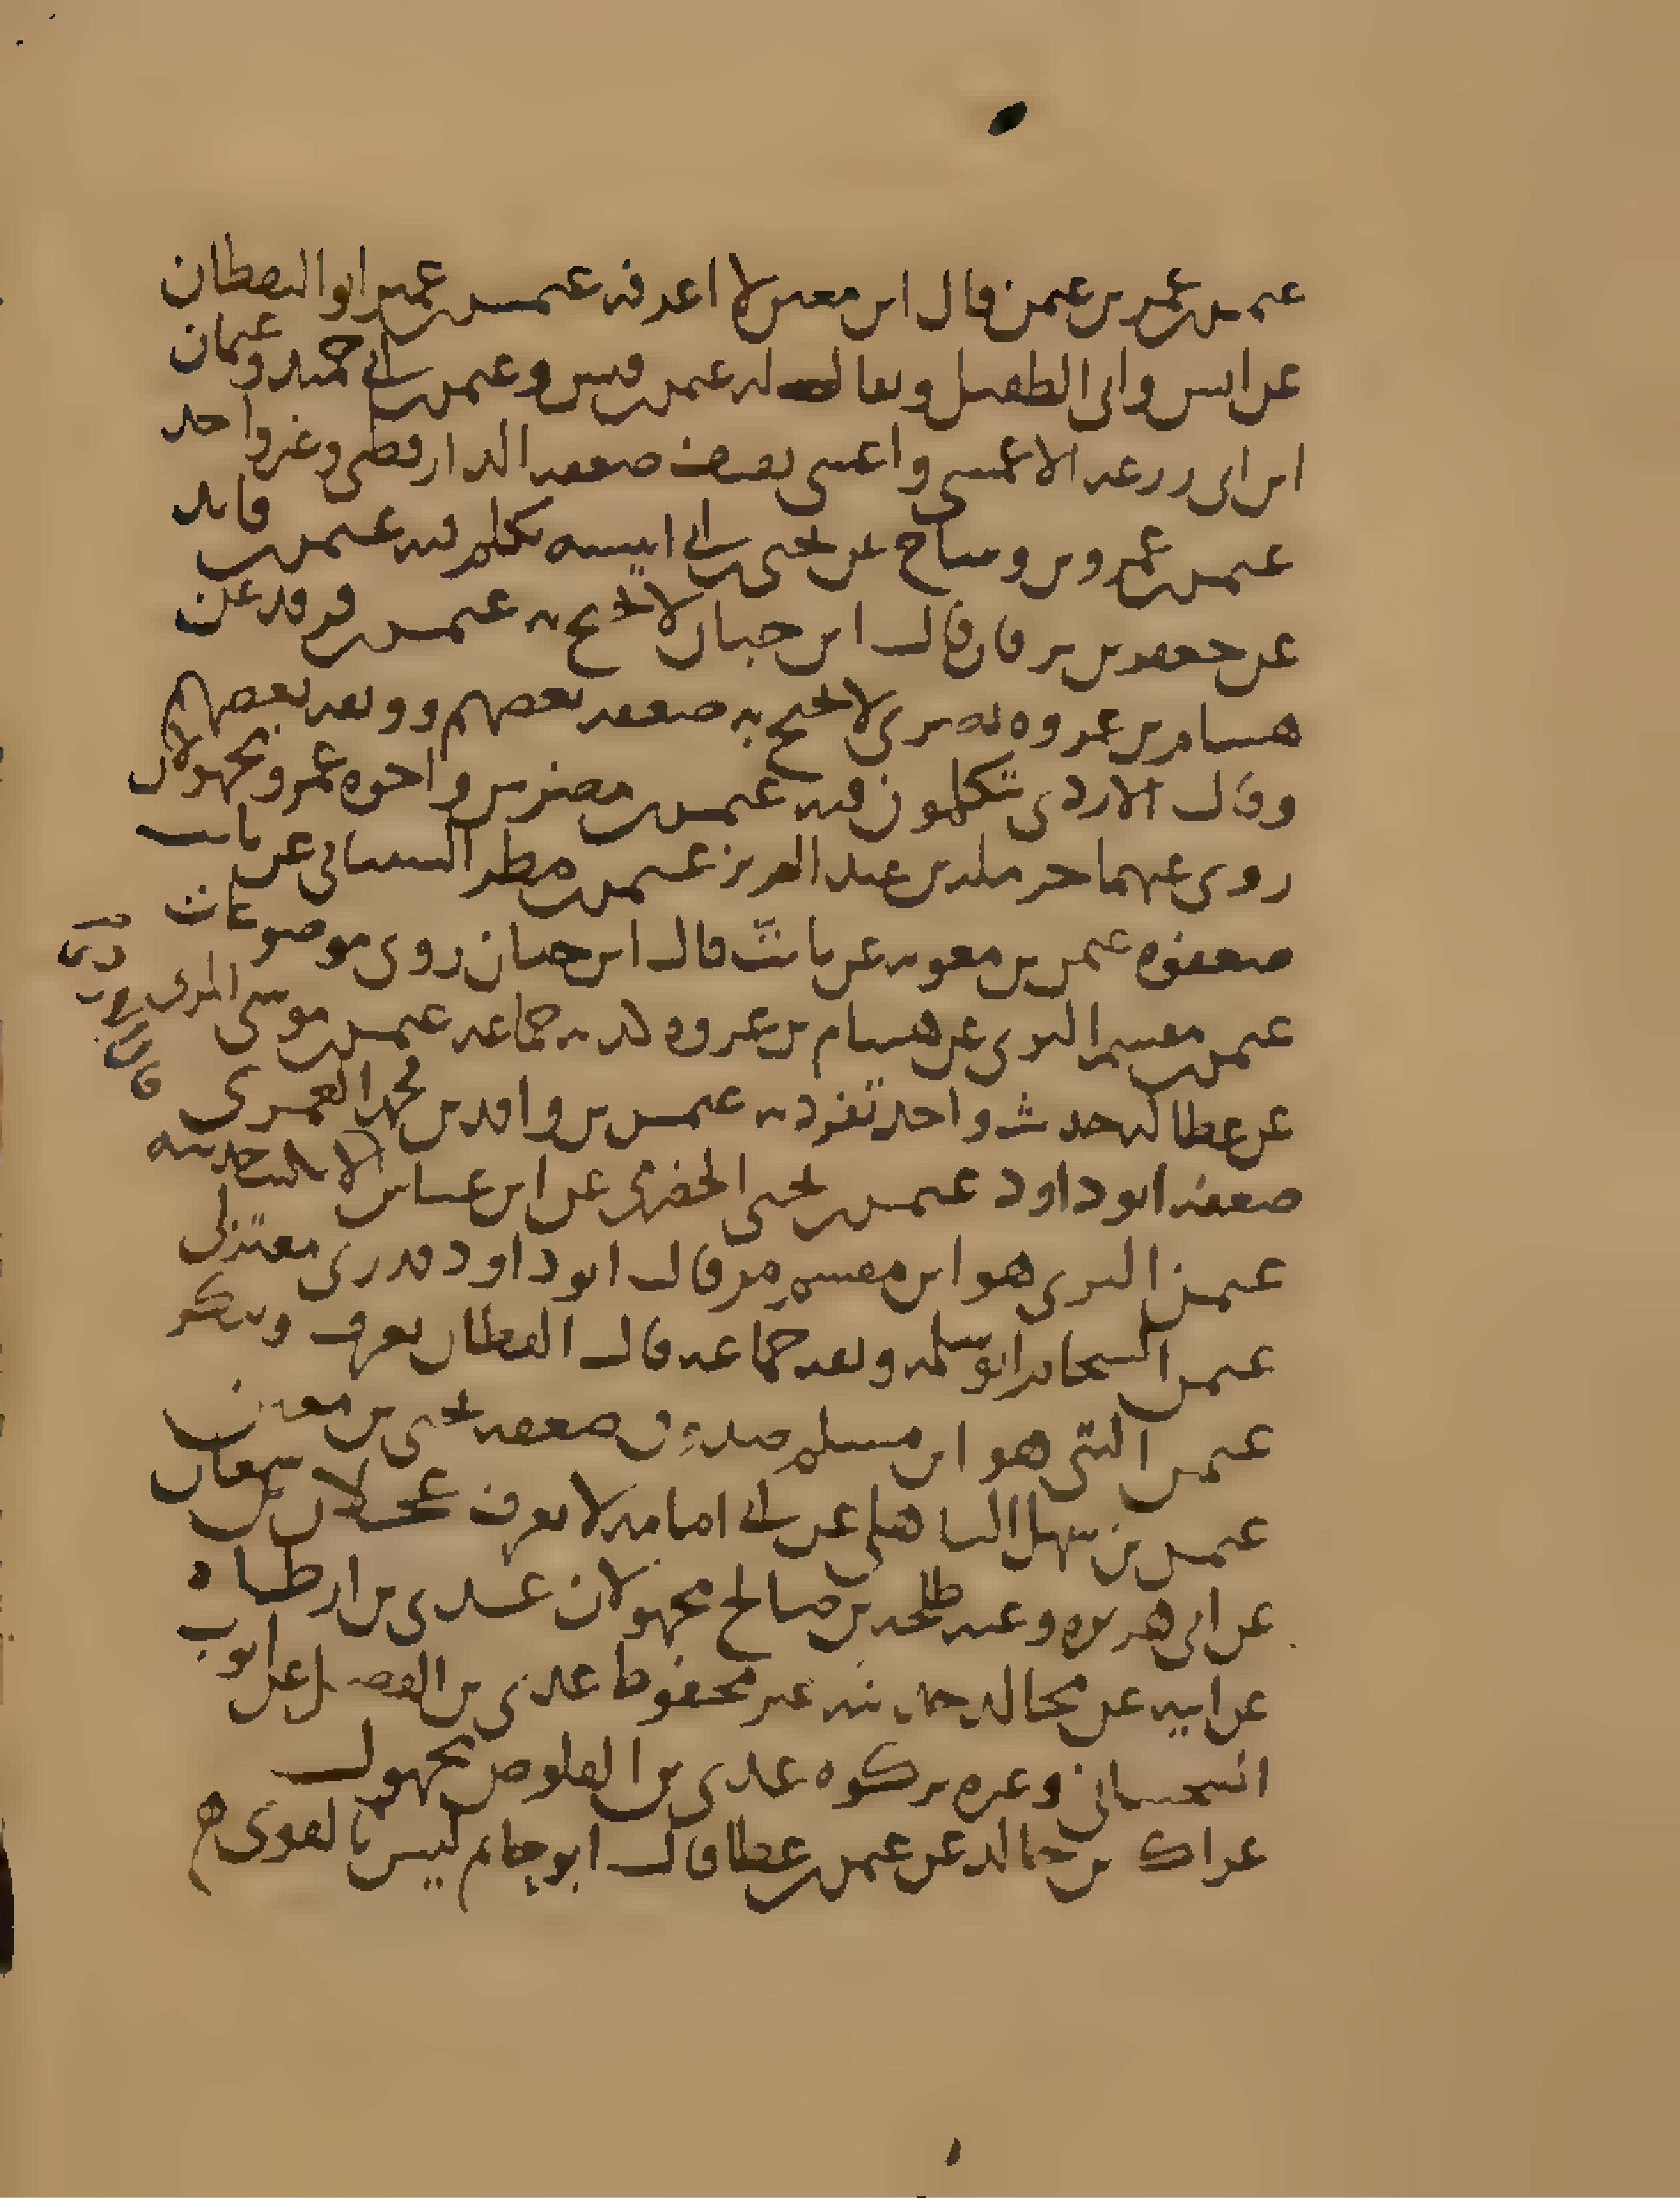 عثمن بن عمر بن عثمن قال ابن معين لا اعرفه عثمن بن عمير ابو اليقظان
عن انس وابي الطفيل ويقال له عثمن بن قيس وعثمن بن ابي حميد وعثمان
ابن ابي زرعه الاعمى واعشى ثقيف ضعفه الدارقطني وغير واحد
عثمن بن عمرو بن وساج عن يحيى بن ابي انيسه تكلم فيه عثمن بن فايد
عن جعفر بن برقان قال ابن حبان لا يحتج به عثمن بن فرقد عن
هشام بن عروه بصري لا يحتج به ضعفه بعضهم ووثقه بعضهم
وقال الازدي يتكلمون فيه عثمن بن مضرس واخوه عمرو مجهولان
روى عنهما حرمله بن عبد العزيز عثمن بن مطر الشيباني عن ثابت
ضعفوه عثمن بن معويه عن ثابت قال ابن حبان روى موضوعات
عثمن بن مقسم البري عن هشام بن عروه كذبه جماعه عثمن بن موسى المزني
عن عطا له حديث واحد تفرد به عثمن بن واقد بن محمد العمري
ضعفه ابو داود عثمن بن يحيى الحضرمي عن ابن عباس لا يكتب حديثه
عثمن البري هو ابن مقسم مر قال ابو داود قدري معتزلي
عثمن الشحام ابو سلمه وثقه جماعه قال القطان يعرف وينكر
عثمن البتي هو ابن مسلم صدوق ضعفه يحيى بن معين
عجلان بن سهل الباهلي عن ابي امامه لا يعرف عجلان بن سمعان
عن ابي هريره وعنه طلحه بن صالح مجهولان عدي بن ارطاه
عن ابيه عن مجالد حديثه غير محفوظ عدي بن الفضل عن ايوب
السختياني وغيره تركوه عدي بن القلوص مجهول
عراك بن خالد عن عثمن بن عطا قال ابو حاتم ليس بالقوي